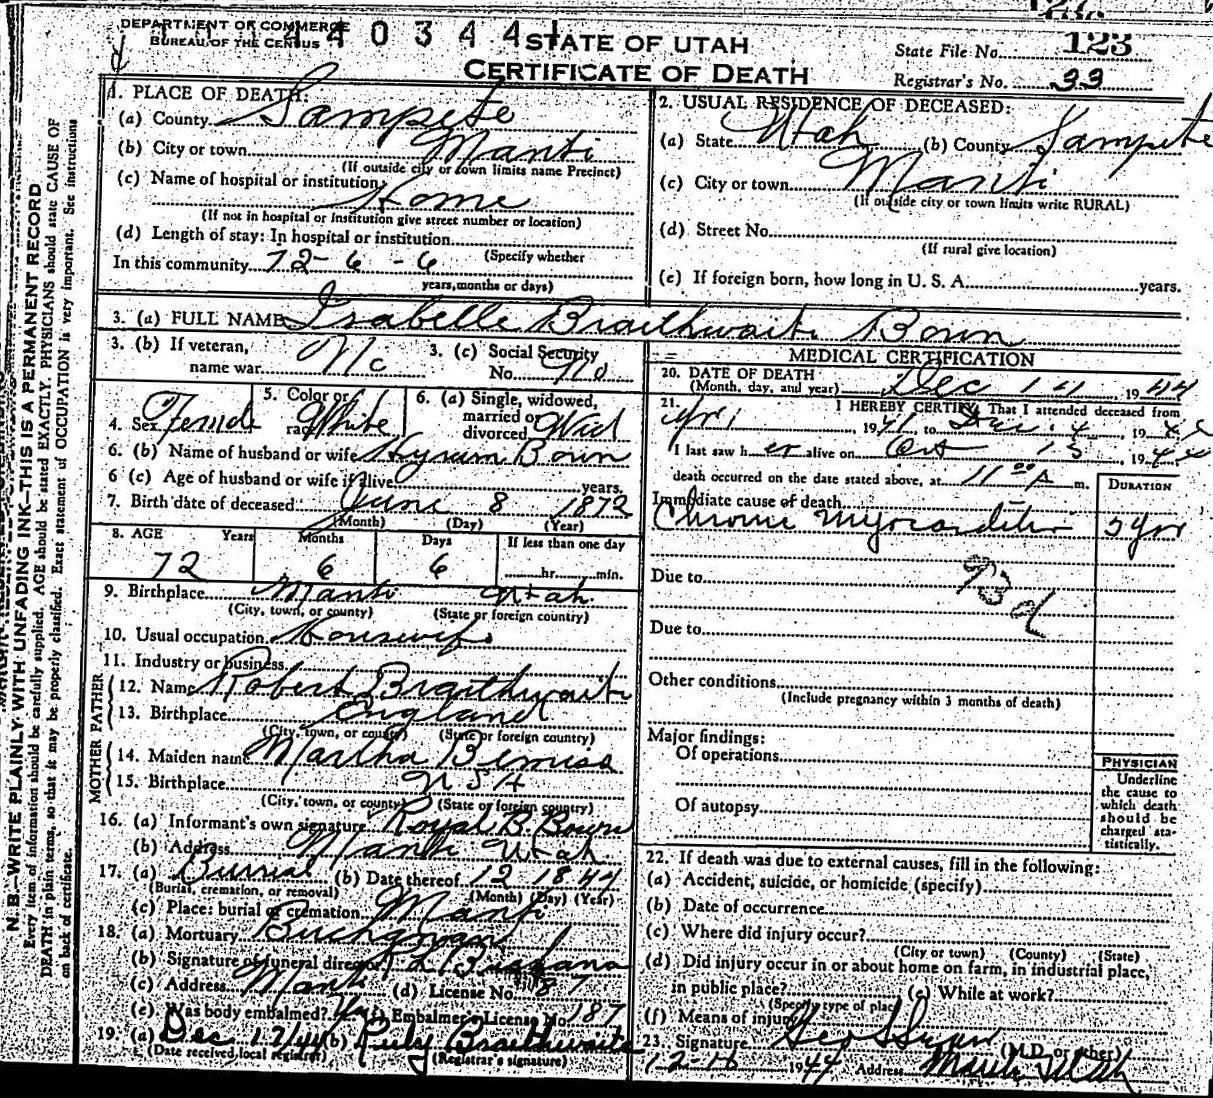 DEPARTMENT OF COMMERCE
BUREAU OF THE CENSUS
4 0 3 4 4
STATE OF UTAH
CERTIFICATE OF DEATH
State File No. 123
Registrar's No. 33
N. B.—WRITE PLAINLY WITH UNFADING INK—THIS IS A PERMANENT RECORD
Every item of information should be carefully supplied. AGE should be stated EXACTLY. PHYSICIANS should state CAUSE OF
DEATH in plain terms, so that it may be properly classified. Exact statement of OCCUPATION is very important. See instructions
on back of certificate.
1. PLACE OF DEATH:
(a) County Sampete
(b) City or town Manti
(If outside city or town limits name Precinct)
(c) Name of hospital or institution
Home
(If not in hospital or institution give street number or location)
(d) Length of stay: In hospital or institution
(Specify whether
In this community 72-6-6
years, months or days)
2. USUAL RESIDENCE OF DECEASED:
(a) State Utah (b) County Sampete
(c) City or town Manti
(If outside city or town limits write RURAL)
(d) Street No.
(If rural give location)
(e) If foreign born, how long in U. S. A. years.
3. (a) FULL NAME Isabelle Braithwaite Bown
3. (b) If veteran,
name war No
3. (c) Social Security
No. No
4. Sex Female
5. Color or
race White
6. (a) Single, widowed,
married or
divorced Wid
6. (b) Name of husband or wife Hyrum Bown
6 (c) Age of husband or wife if alive years.
7. Birth date of deceased June 8 1872
(Month) (Day) (Year)
8. AGE Years Months Days If less than one day
72 6 6 hr. min.
9. Birthplace Manti Utah
(City, town, or county) (State or foreign country)
10. Usual occupation Housewife
11. Industry or business
FATHER
12. Name Robert Braithwaite
13. Birthplace England
(City, town, or county) (State or foreign country)
MOTHER
14. Maiden name Martha
15. Birthplace U S A
(City, town, or county) (State or foreign country)
16. (a) Informant's own signature Royal B. Bown
(b) Address Manti Utah
17. (a) Burial (b) Date thereof 12 18 44
(Burial, cremation, or removal) (Month) (Day) (Year)
(c) Place: burial or cremation Manti
18. (a) Mortuary
(b) Signature of funeral director
(c) Address Manti (d) License No. 87
(e) Was body embalmed? (f) Embalmer's License No. 187
19. (a) Dec 17/44 (b) Ruby Braithwaite
(Date received local registrar) (Registrar's signature)
MEDICAL CERTIFICATION
20. DATE OF DEATH
(Month, day, and year) Dec 14 1944
21. I HEREBY CERTIFY, That I attended deceased from
1941, to Dec. 4, 1944
I last saw her alive on Oct 15, 1944
death occurred on the date stated above, at 11 00 A m.
DURATION
Immediate cause of death
Chronic Myocarditis 5 yrs
Due to
93 d
Due to
Other conditions
(Include pregnancy within 3 months of death)
Major findings:
Of operations
Of autopsy
PHYSICIAN
Underline
the cause to
which death
should be
charged sta-
tistically.
22. If death was due to external causes, fill in the following:
(a) Accident, suicide, or homicide (specify)
(b) Date of occurrence
(c) Where did injury occur?
(City or town) (County) (State)
(d) Did injury occur in or about home on farm, in industrial place,
in public place? (e) While at work?
(Specify type of place)
(f) Means of injury
23. Signature (M.D. or other)
12-16 1944 Address Manti Utah